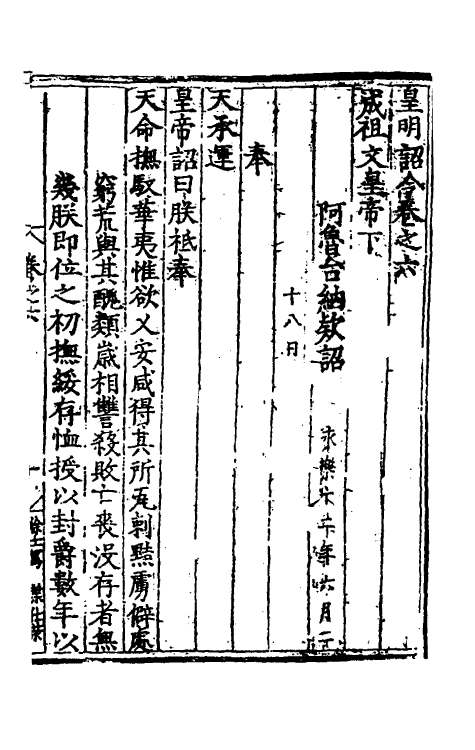 皇明詔令卷之六
成祖文皇帝下
阿魯台納欵詔
十八日
奉
天承運
皇帝詔曰朕祗奉
天命撫馭華夷惟欲乂安咸得其所瓦剌黠虜僻處
窮荒與其醜類歲相讐殺敗亡喪没存者無
幾朕即位之初撫綏存恤授以封爵數年以
卷之六